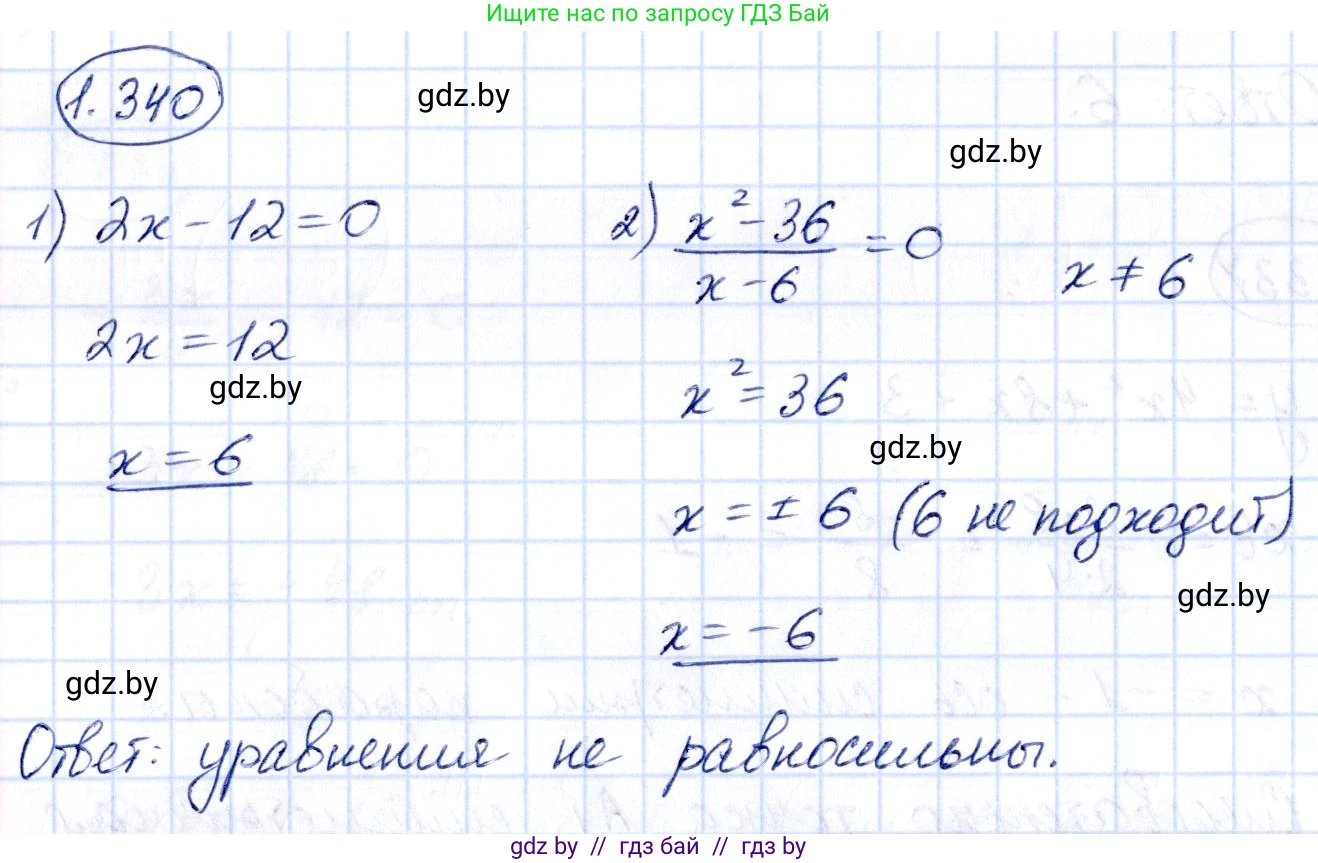 Ищите нас по запросу ГДЗ Бай
1.340
gdz.by
gdz.by
1) 2x - 12 = 0
2x = 12
gdz.by
x = 6
2) (x² - 36)/(x - 6) = 0
x ≠ 6
x² = 36
gdz.by
x = ± 6 (6 не подходит)
gdz.by
x = -6
gdz.by
Ответ: уравнения не равносильны.
gdz.by // гдз бай // гдз by